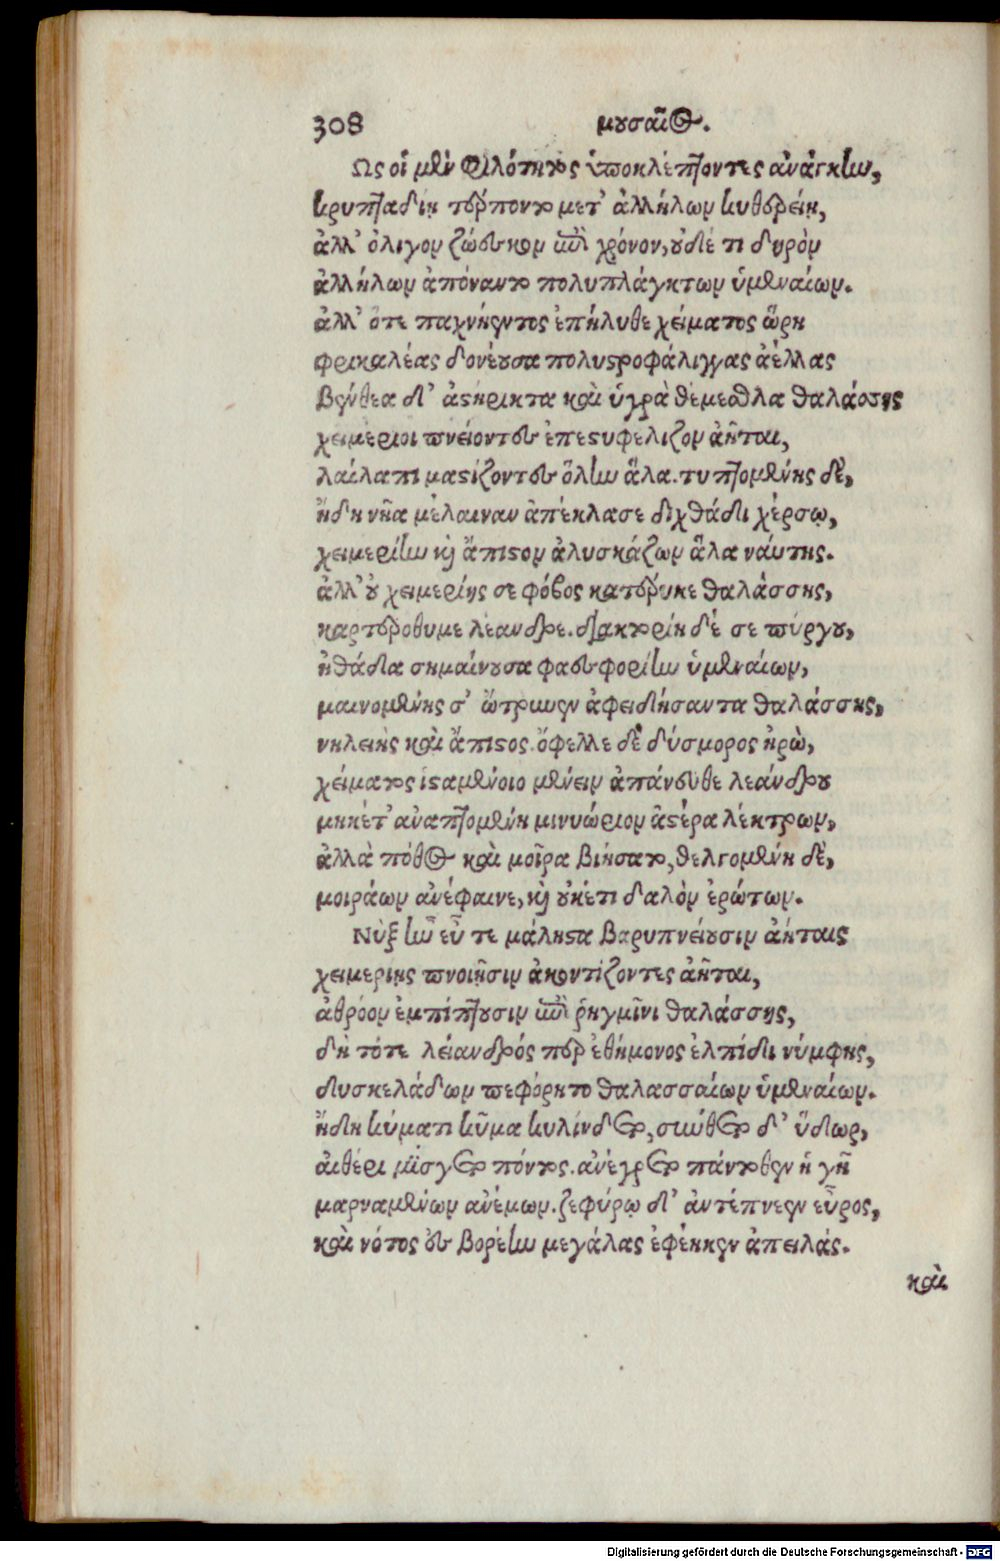 308 μουσαῖος.
Ως οἱ μὲν φιλότητος ὑποκλέπτοντες ἀνάγκην,
κρυπταδίῃ τέρποντο μετ' ἀλλήλων κυθερείῃ,
ἀλλ' ὀλίγον ζώεσκον ἐπὶ χρόνον, οὐδέ τι δηρὸν
ἀλλήλων ἀπόναντο πολυπλάγκτων ὑμεναίων.
ἀλλ' ὅτε παχνήεντος ἐπήλυθε χείματος ὥρη
φρικαλέας δονέουσα πολυστροφάλιγγας ἀέλλας
βένθεα δ' ἀστήρικτα καὶ ὑγρὰ θέμεθλα θαλάσσης
χειμέριοι πνείοντες ἐπεστυφέλιζον ἀῆται,
λαίλαπι μαστίζοντες ὅλην ἅλα. τυπτομένης δὲ,
ἤδη νῆα μέλαιναν ἀπέκλασε διχθάδι χέρσῳ,
χειμερίην καὶ ἄπιστον ἀλυσκάζων ἅλα ναύτης.
ἀλλ' οὐ χειμερίης σε φόβος κατέρυκε θαλάσσης,
καρτερόθυμε λέανδρε. διακτορίη δέ σε πύργου,
ἠθάδια σημαίνουσα φαεσφορίην ὑμεναίων,
μαινομένης σ' ὤτρυνεν ἀφειδήσαντα θαλάσσης,
νηλειὴς καὶ ἄπιστος. ὄφελλε δὲ δύσμορος ἡρὼ,
χείματος ἱσταμένοιο μένειν ἀπάνευθε λεάνδρου
μηκέτ' ἀναπτομένη μινυώριον ἀστέρα λέκτρων,
ἀλλὰ πόθος καὶ μοῖρα βιήσατο, θελγομένη δὲ,
μοιράων ἀνέφαινε, καὶ οὐκέτι δαλὸν ἐρώτων.
Νὺξ ἦν εὖ τε μάληστα βαρυπνείουσιν ἀήταις
χειμερίῃς πνοιῇσιν ἀκοντίζοντες ἀῆται,
ἀθρόον ἐμπίπτουσιν ἐπὶ ῥηγμῖνι θαλάσσης,
δὴ τότε λείανδρός περ ἐθήμονος ἐλπίδι νύμφης,
δυσκελάδων πεφόρητο θαλασσαίων ὑμεναίων.
ἤδη κύματι κῦμα κυλίνδετο, σύνθετο δ' ὕδωρ,
αἰθέρι μίσγετο πόντος. ἀνέγρετο πάντοθεν ἡ γῆ
μαρναμένων ἀνέμων. ζεφύρῳ δ' ἀντέπνεεν εὖρος,
καὶ νότος ἐς βορέην μεγάλας ἐφέηκεν ἀπειλάς.
καὶ
Digitalisierung gefördert durch die Deutsche Forschungsgemeinschaft - DFG